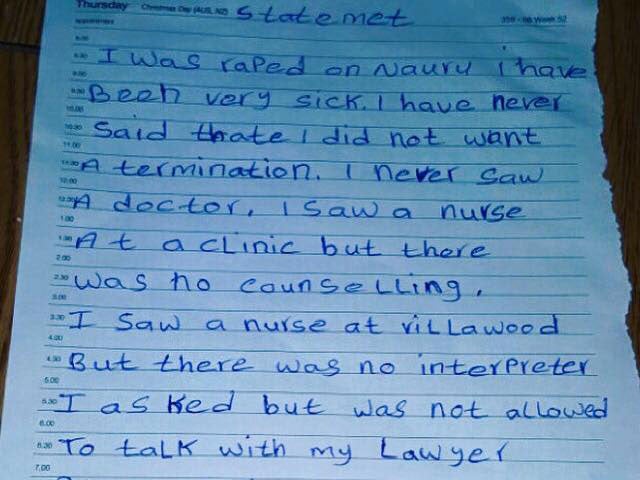 Thursday Christmas Day (AUS, NZ) Statemet 359 - 06 Week 52
Appointment
8.00
8.30 I was raped on Nauru i have
9.00
9.30 Been very sick. I have never
10.00
10.30 Said thate I did not want
11.00
11.30 A termination. I never saw
12.00
12.30 A doctor, I saw a nurse
1.00
1.30 At a clinic but there
2.00
2.30 was no counselling,
3.00
3.30 I saw a nurse at villawood
4.00
4.30 But there was no interpreter
5.00
5.30 I asked but was not allowed
6.00
6.30 To talk with my Lawyer
7.00